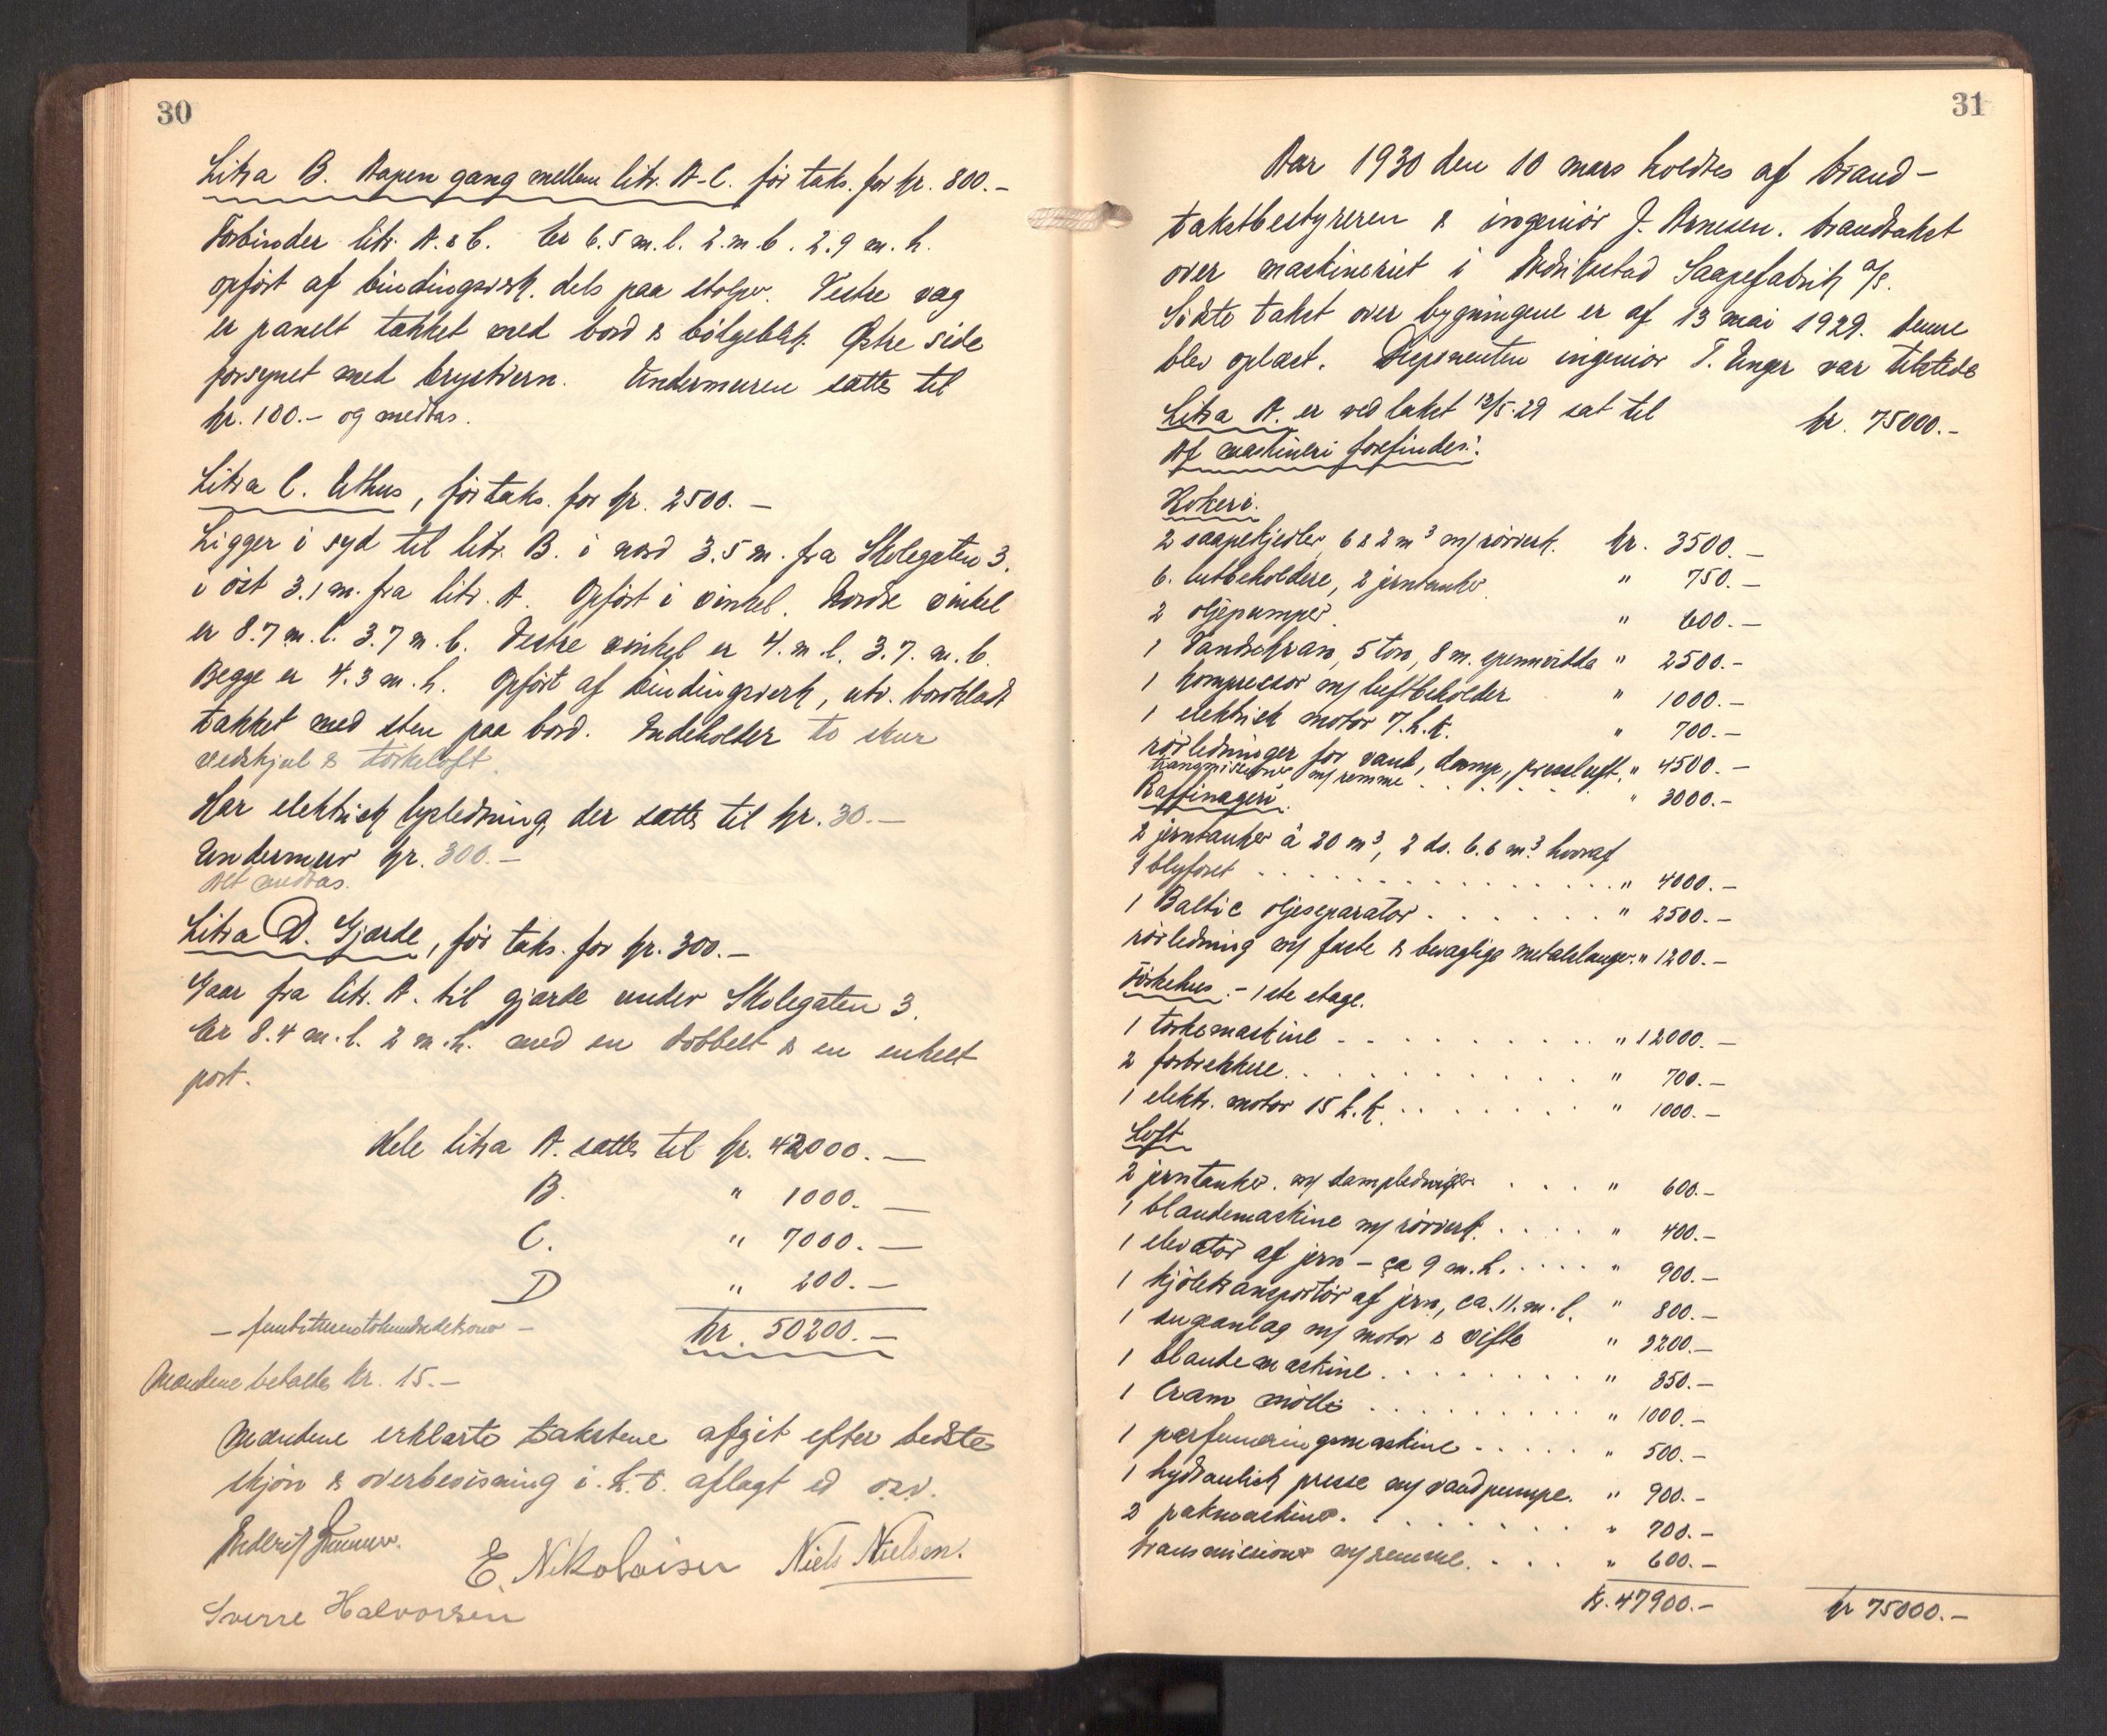 30
Litra B. Aapen gang mellem litr. A-C. før taks. for kr. 800.-
Forbinder litr. A. & C. Er 6.5 m. l. 2. m. b. 2.9 m. h.
opført af bindingsverk. dels paa stolper. Vestre væg
er panelt tækket med bord & bølgeblik. Østre side
forsynet med brystvern. Undermuren sættes til
kr. 100.- og medtas.
Litra C. Uthus, før taks. for kr. 2500.-
Ligger i syd til litr. B. i nord 3.5 m. fra Skolegaten 3.
i øst 3.1 m. fra litr. A. Opført i vinkel. Nordre vinkel
er 8.7 m. l. 3.7 m. b. Vestre vinkel er 4. m. l. 3.7. m. b.
Begge er 4.3 m. h. Opført af bindingsverk, utv. bordklædt
tækket med sten paa bord. Indeholder to skur
vedskjul & tørkeloft.
Har elektrisk lysledning, der sættes til kr. 30.-
Undermur kr. 300.-
Alt medtas.
Litra D. Gjærde, før taks. for kr. 300.-
Gaar fra litr. A. til gjærde under Skolegaten 3.
Er 8.4 m. l. 2 m. h. med en dobbelt & en enkelt
port.
Hele litra A. sættes til kr. 42000.-
B. " 1000.-
C. " 7000.-
D " 200.-
- femtitusentohundredekroner - kr. 50200.-
Mændene betaltes kr. 15.-
Mændene erklærte taksten afgit efter bedste
skjøn & overbevisning i. h. t. aflagt ed o.s.v.
E. Nikolaisen Niels Nielsen.
Sverre Halvorsen
31
Aar 1930 den 10 mars holdtes af brand-
takstbestyreren & ingeniør J. Arnesen. brandtakst
over maskineriet i Fredrikstad Saapefabrik A/S.
Sidste takst over bygningene er af 13 mai 1929. Denne
blev oplæst. Disponenten ingeniør T. Unger var tilstede
Litra A. er ved takst 13/5.29 sat til kr. 75000.-
Af maskineri forefindes:
Kokeri.
2 saapekjedler, 6 & 2 m³ m/ rørverk. kr. 3500.-
6. lutbeholdere, 2 jerntanker. " 750.-
2 oljepumper. " 600.-
1 Vandskran, 5 ton, 8 m. spennvidde " 2500.-
1 kompressor m/ luftbeholder " 1000.-
1 elektrisk motor 7. h. k. " 700.-
rørledninger for vand, damp, pressluft. " 4500.-
transmissioner m/ remme . . . . " 3000.-
Raffinageri.
2 jerntanker à 20 m³, 2 do. 6.6 m³. hvoraf
1 blyforet . . . . " 4000.-
1 Baltic oljeseparator . . . . " 2500.-
rørledning m/ faste & bevægelige metalslanger. " 1200.-
Tørkehus. - 1ste etage.
1 tørkemaskine . . . . " 12000.-
2 fortrekkere . . . . " 700.-
1 elektr. motor 15 h. k. . . . . " 1000.-
Loft
2 jerntanker. m/ dampledninger . . . " 600.-
1 blandemaskine m/ rørverk. . . . " 400.-
1 elevator af jern - ca 9 m. h. . . . . " 900.-
1 kjøletransportør af jern, ca. 11. m. l. " 800.-
1 sugeanlæg m/ motor & vifte " 3200.-
1 blandemaskine . . . . " 850.-
1 Cram mølle . . . . " 1000.-
1 parfumeringsmaskine . . . . " 500.-
1 hydraulisk presse m/ vandpumpe. " 900.-
2 pakmaskiner . . . . " 700.-
transmissioner m/ remme. . . . " 600.-
Kr. 47900.- kr 75000.-